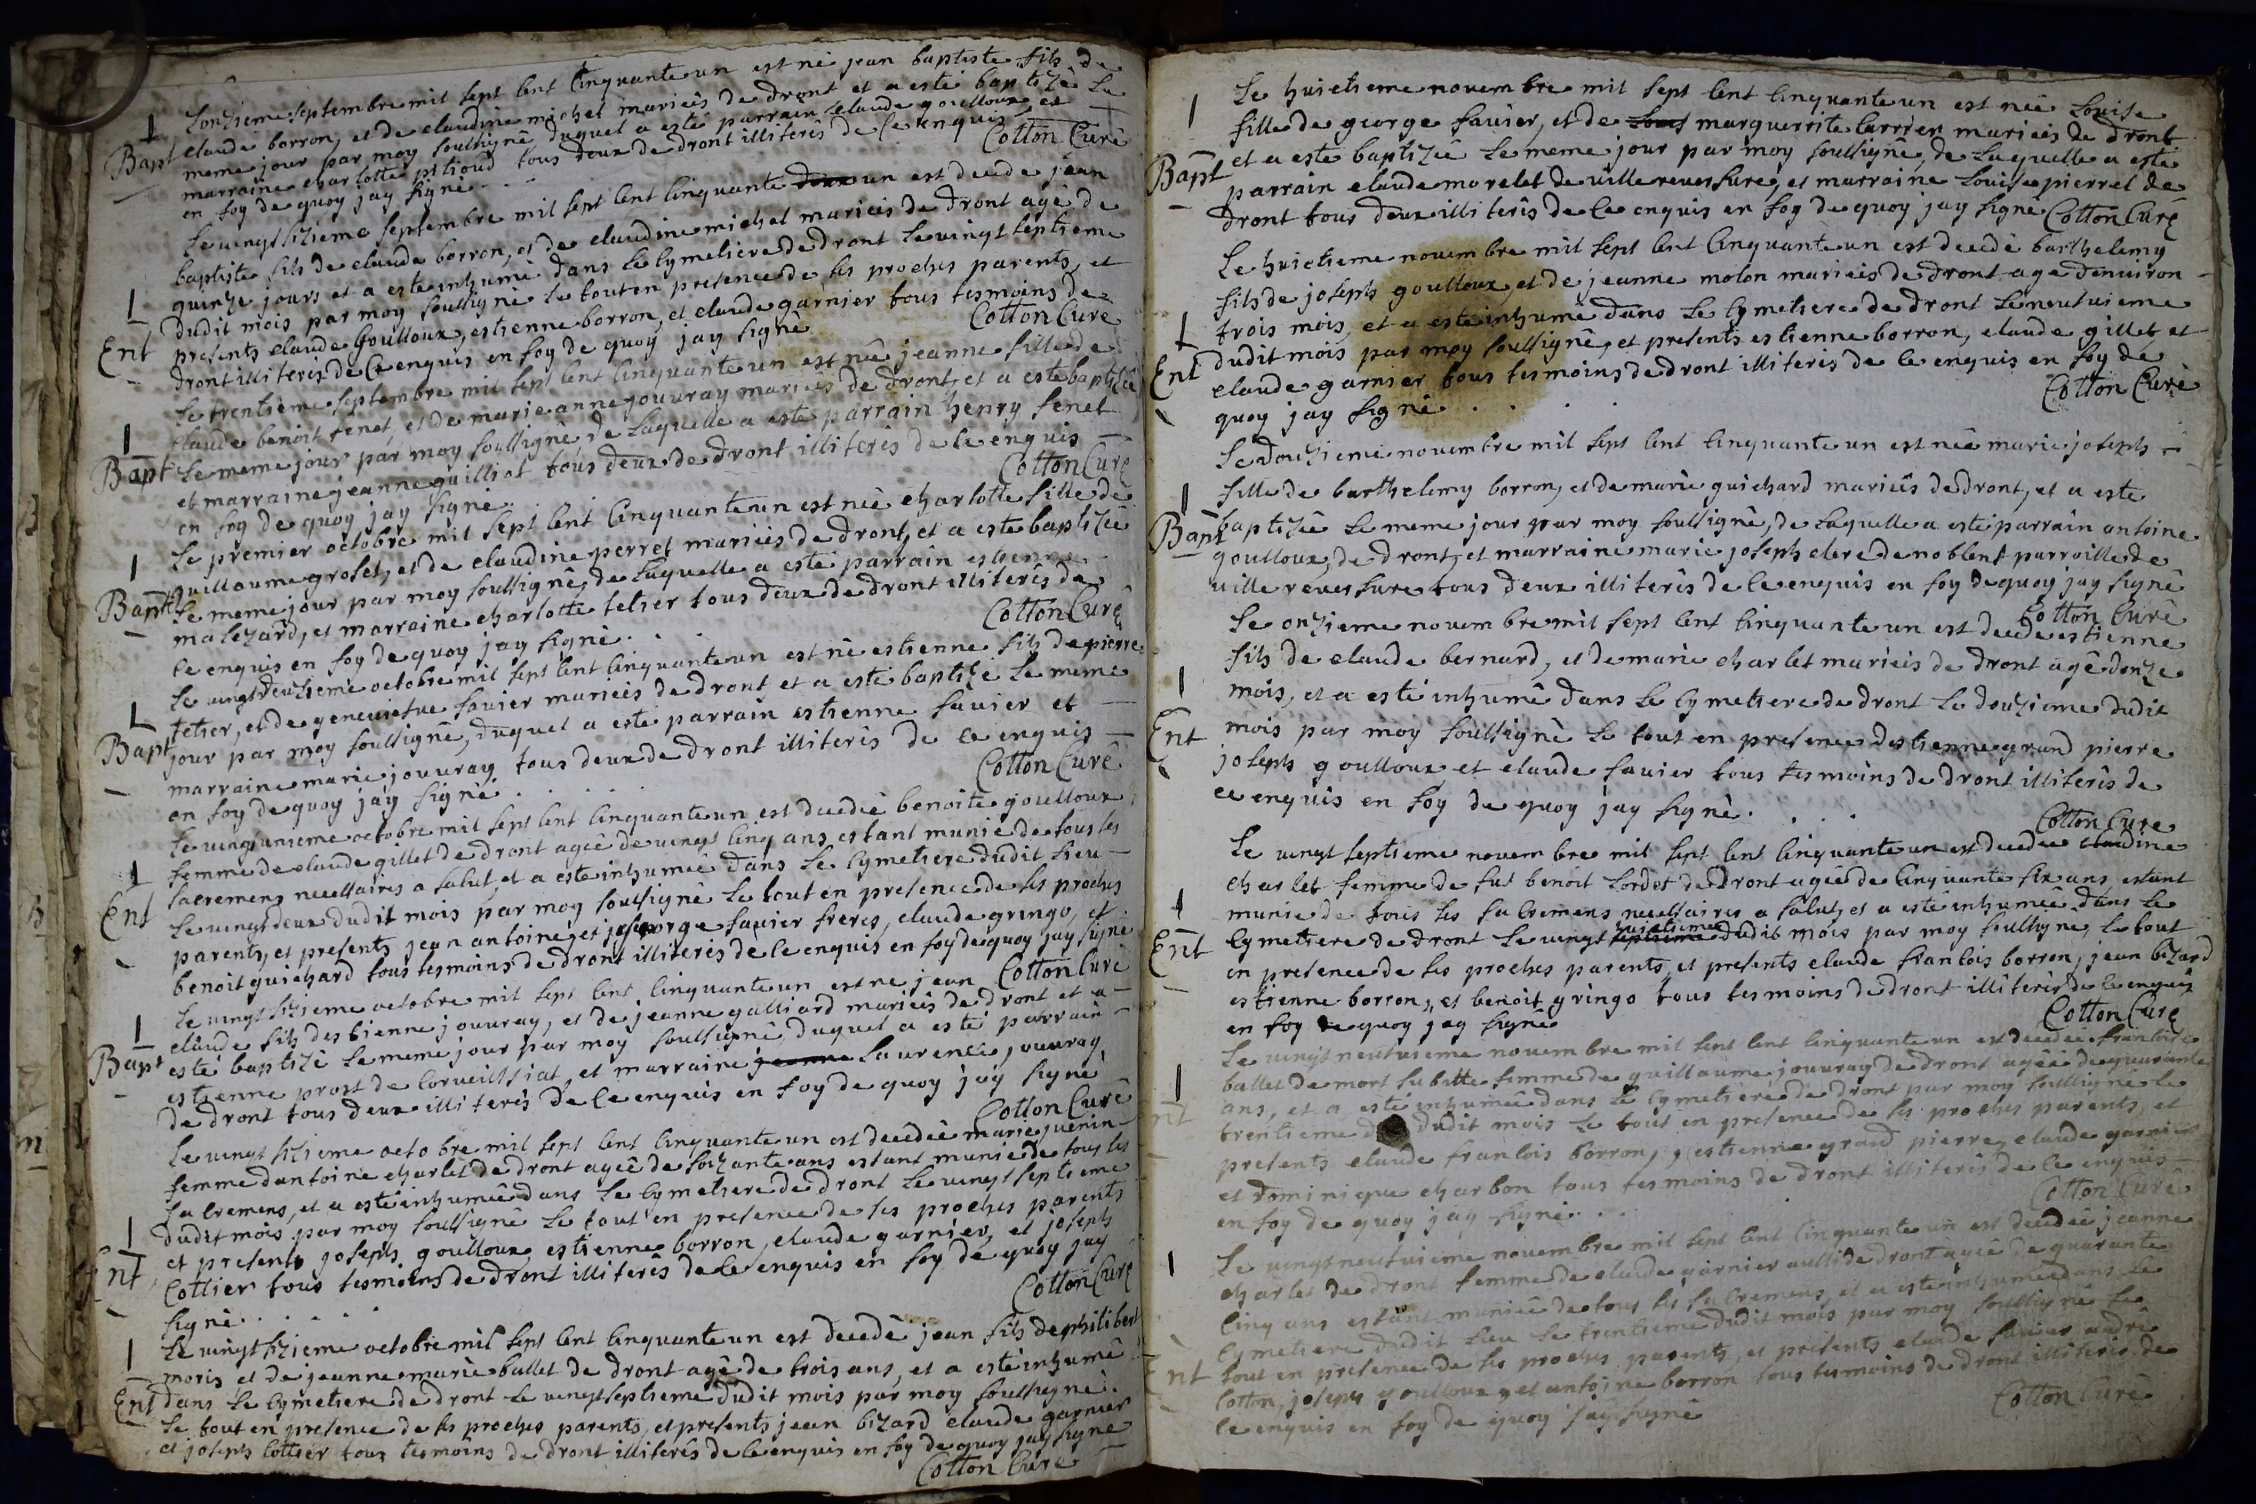 1
Bapt
Lonzieme septembre mil sept cent cinquante un est né jean baptiste fils de
claude borron, et de claudine michel mariés de dront et a esté baptizé le
meme jour par moy soussigné duquel a esté parrain claude goulloux, et
marraine charlotte tous deux de dront illiterés de ce enquis
en foy de quoy jay signé Cotton Curé
1
Ent
Le vingt sizieme septembre mil sept cent cinquante un est decede jean
baptiste fils de claude borron, et de claudine michel mariés de dront agé de
quinze jours et a esté inhumé dans le cymetiere de dront le vingt septieme
dudit mois par moy soussigné le tout en presence de ses proches parents, et
presents claude Goulloux, estienne borron, et claude garnier tous tesmoins de
dront illiterés de ce enquis en foy de quoy jay signé Cotton Curé
1
Bapt
Le trentieme septembre mil sept cent cinquante un est née jeanne fille de
claude benoit fenet, et de marie anne jouvray mariés de dront, et a esté baptizée
le meme jour par moy soussigné de laquelle a esté parrain henry fenet
et marraine jeanne guilliot tous deux de dront illiterés de ce enquis
en foy de quoy jay signé Cotton Curé
1
Bapt
Le premier octobre mil sept cent cinquante un est née charlotte fille de
guillaume groset, et de claudine perret mariés de dront, et a esté baptizée
le meme jour par moy soussigné, de laquelle a esté parrain estienne
malezard, et marraine charlotte tetier tous deux de dront illiterés de
ce enquis en foy de quoy jay signé. Cotton Curé
1
Bapt
Le vingt deuzieme octobre mil sept cent cinquante un est né estienne fils de pierre
tetier, et de geneviefve favier mariés de dront et a esté baptizé le meme
jour par moy soussigné, duquel a esté parrain estienne favier et
marraine marie jouvray tous deux de dront illiterés de ce enquis
en foy de quoy jay signé Cotton Curé
1
Ent
Le vingt unieme octobre mil sept cent cinquante un est decedée benoite goulloux
femme de claude gillet de dront agée de vingt cinq ans estant munie de tous les
sacremens necessaires a salut, et a esté inhumée dans le cymetiere dudit lieu
le vingt deux dudit mois par moy soussigné le tout en presence de ses proches
parents, et presents jean antoine et george favier freres, claude gringo, et
benoit guichard tous tesmoins de dront illiterés de ce enquis en foy de quoy jay signé
Cotton Curé
1
Bapt
Le vingt sizieme octobre mil sept cent cinquante un est né jean
claude fils destienne jouvray, et de jeanne galliard mariés de dront et a
esté baptizé le meme jour par moy soussigné, duquel a esté parrain
estienne prost de Corveissiat, et marraine jeanne laurence jouvray
de dront tous deux illiterés de ce enquis en foy de quoy jay signé
Cotton Curé
1
Ent
Le vingt sizieme octobre mil sept cent cinquante un est decedée marie juenin
femme dantoine charlet de dront agée de soizante ans estant munie de tous les
sacremens, et a esté inhumée dans le cymetiere de dront le vingt septieme
dudit mois par moy soussigné le tout en presence de ses proches parents
et presents joseph goulloux estienne borron, claude garnier, et joseph
Cottier tous tesmoins de dront illiterés de ce enquis en foy de quoy jay
signé. Cotton Curé
1
Ent
Le vingt sizieme octobre mil sept cent cinquante un est decedé jean fils de philibert
moris et de jeanne marie ballet de dront agé de trois ans, et a esté inhumé
dans le cymetiere de dront le vingt septieme dudit mois par moy soussigné.
le tout en presence de ses proches parents, et presents jean bizard claude garnier
et joseph cottier tous tesmoins de dront illiterés de ce enquis en foy de quoy jay signé
Cotton Curé
1
Bapt
Le huictieme novembre mil sept cent cinquante un est née Louise
fille de george favier, et de marguerrite carrier mariés de dront
et a esté baptizée le meme jour par moy soussigné, de laquelle a esté
parrain claude morelet de ville reversure, et marraine Louise pierrel de
dront tous deux illiterés de ce enquis en foy de quoy jay signé Cotton Curé
1
Ent
Le huictieme novembre mil sept cent cinquante un est decedé barthelemy
fils de joseph goulloux, et de jeanne molon mariés de dront agé denviron
trois mois, et a esté inhumé dans le cymetiere de dront le neuvieme
dudit mois par moy soussigné, et presents estienne borron, claude gillet, et
claude garnier tous tesmoins de dront illiterés de ce enquis en foy de
quoy jay signé Cotton Curé
1
Bapt
Le douzieme novembre mil sept cent cinquante un est née marie joseph
fille de barthelemy borron, et de marie guichard mariés de dront, et a esté
baptizée le meme jour par moy soussigné, de laquelle a esté parrain antoine
goulloux, de dront, et marraine marie joseph clere de noblens parroisse de
ville reversure tous deux illiterés de ce enquis en foy de quoy jay signé
Cotton Curé
1
Ent
Le onzieme novembre mil sept cent cinquante un est decede estienne
fils de claude bernard, et de marie charlet mariés de dront agé donze
mois, et a esté inhumé dans le cymetiere de dront le douzieme dudit
mois par moy soussigné le tout en presence destienne grand pierre
joseph goulloux et claude favier tous tesmoins de dront illiterés de
ce enquis en foy de quoy jay signé.
Cotton Curé
1
Ent
Le vingt septieme novembre mil sept cent cinquante un est decedée claudine
charlet femme de fut benoit Lordet de dront agée de cinquante six ans estant
munie de touts les sacremens necessaires a salut, et a esté inhumée dans le
cymetiere de dront le vingt huictieme dudit mois par moy soussigné, le tout
en presence de ses proches parents, et presents claude francois borron, jean bizard
estienne borron, et benoit gringo tous tesmoins de dront illiterés de ce enquis
en foy de quoy jay signé Cotton Curé
1
Ent
Le vingt neufvieme novembre mil sept cent cinquante un est decedée francoise
ballet de mort subitte femme de guillaume jouvray de dront agée de quarante
ans, et a esté inhumée dans le cymetiere de dront par moy soussigné le
trentieme dudit mois le tout en presence de ses proches parents, et
presents claude francois borron, estienne grand pierre, claude garnier
et dominique charbon tous tesmoins de dront illiterés de ce enquis
en foy de quoy jay signé. Cotton Curé
1
Ent
Le vingt neufvieme novembre mil sept cent cinquante un est decedée jeanne
charlet de dront femme de claude garnier aussi de dront agée de quarante
cinq ans estant munie de tous les sacremens, et a esté inhumée dans le
cymetiere dudit lieu le trentieme dudit mois par moy soussigné le
tout en presence de ses proches parents, et presents claude favier, andré
Cotton, joseph goulloux, et antoine borron tous tesmoins de dront illiterés de
ce enquis en foy de quoy jay signé Cotton Curé